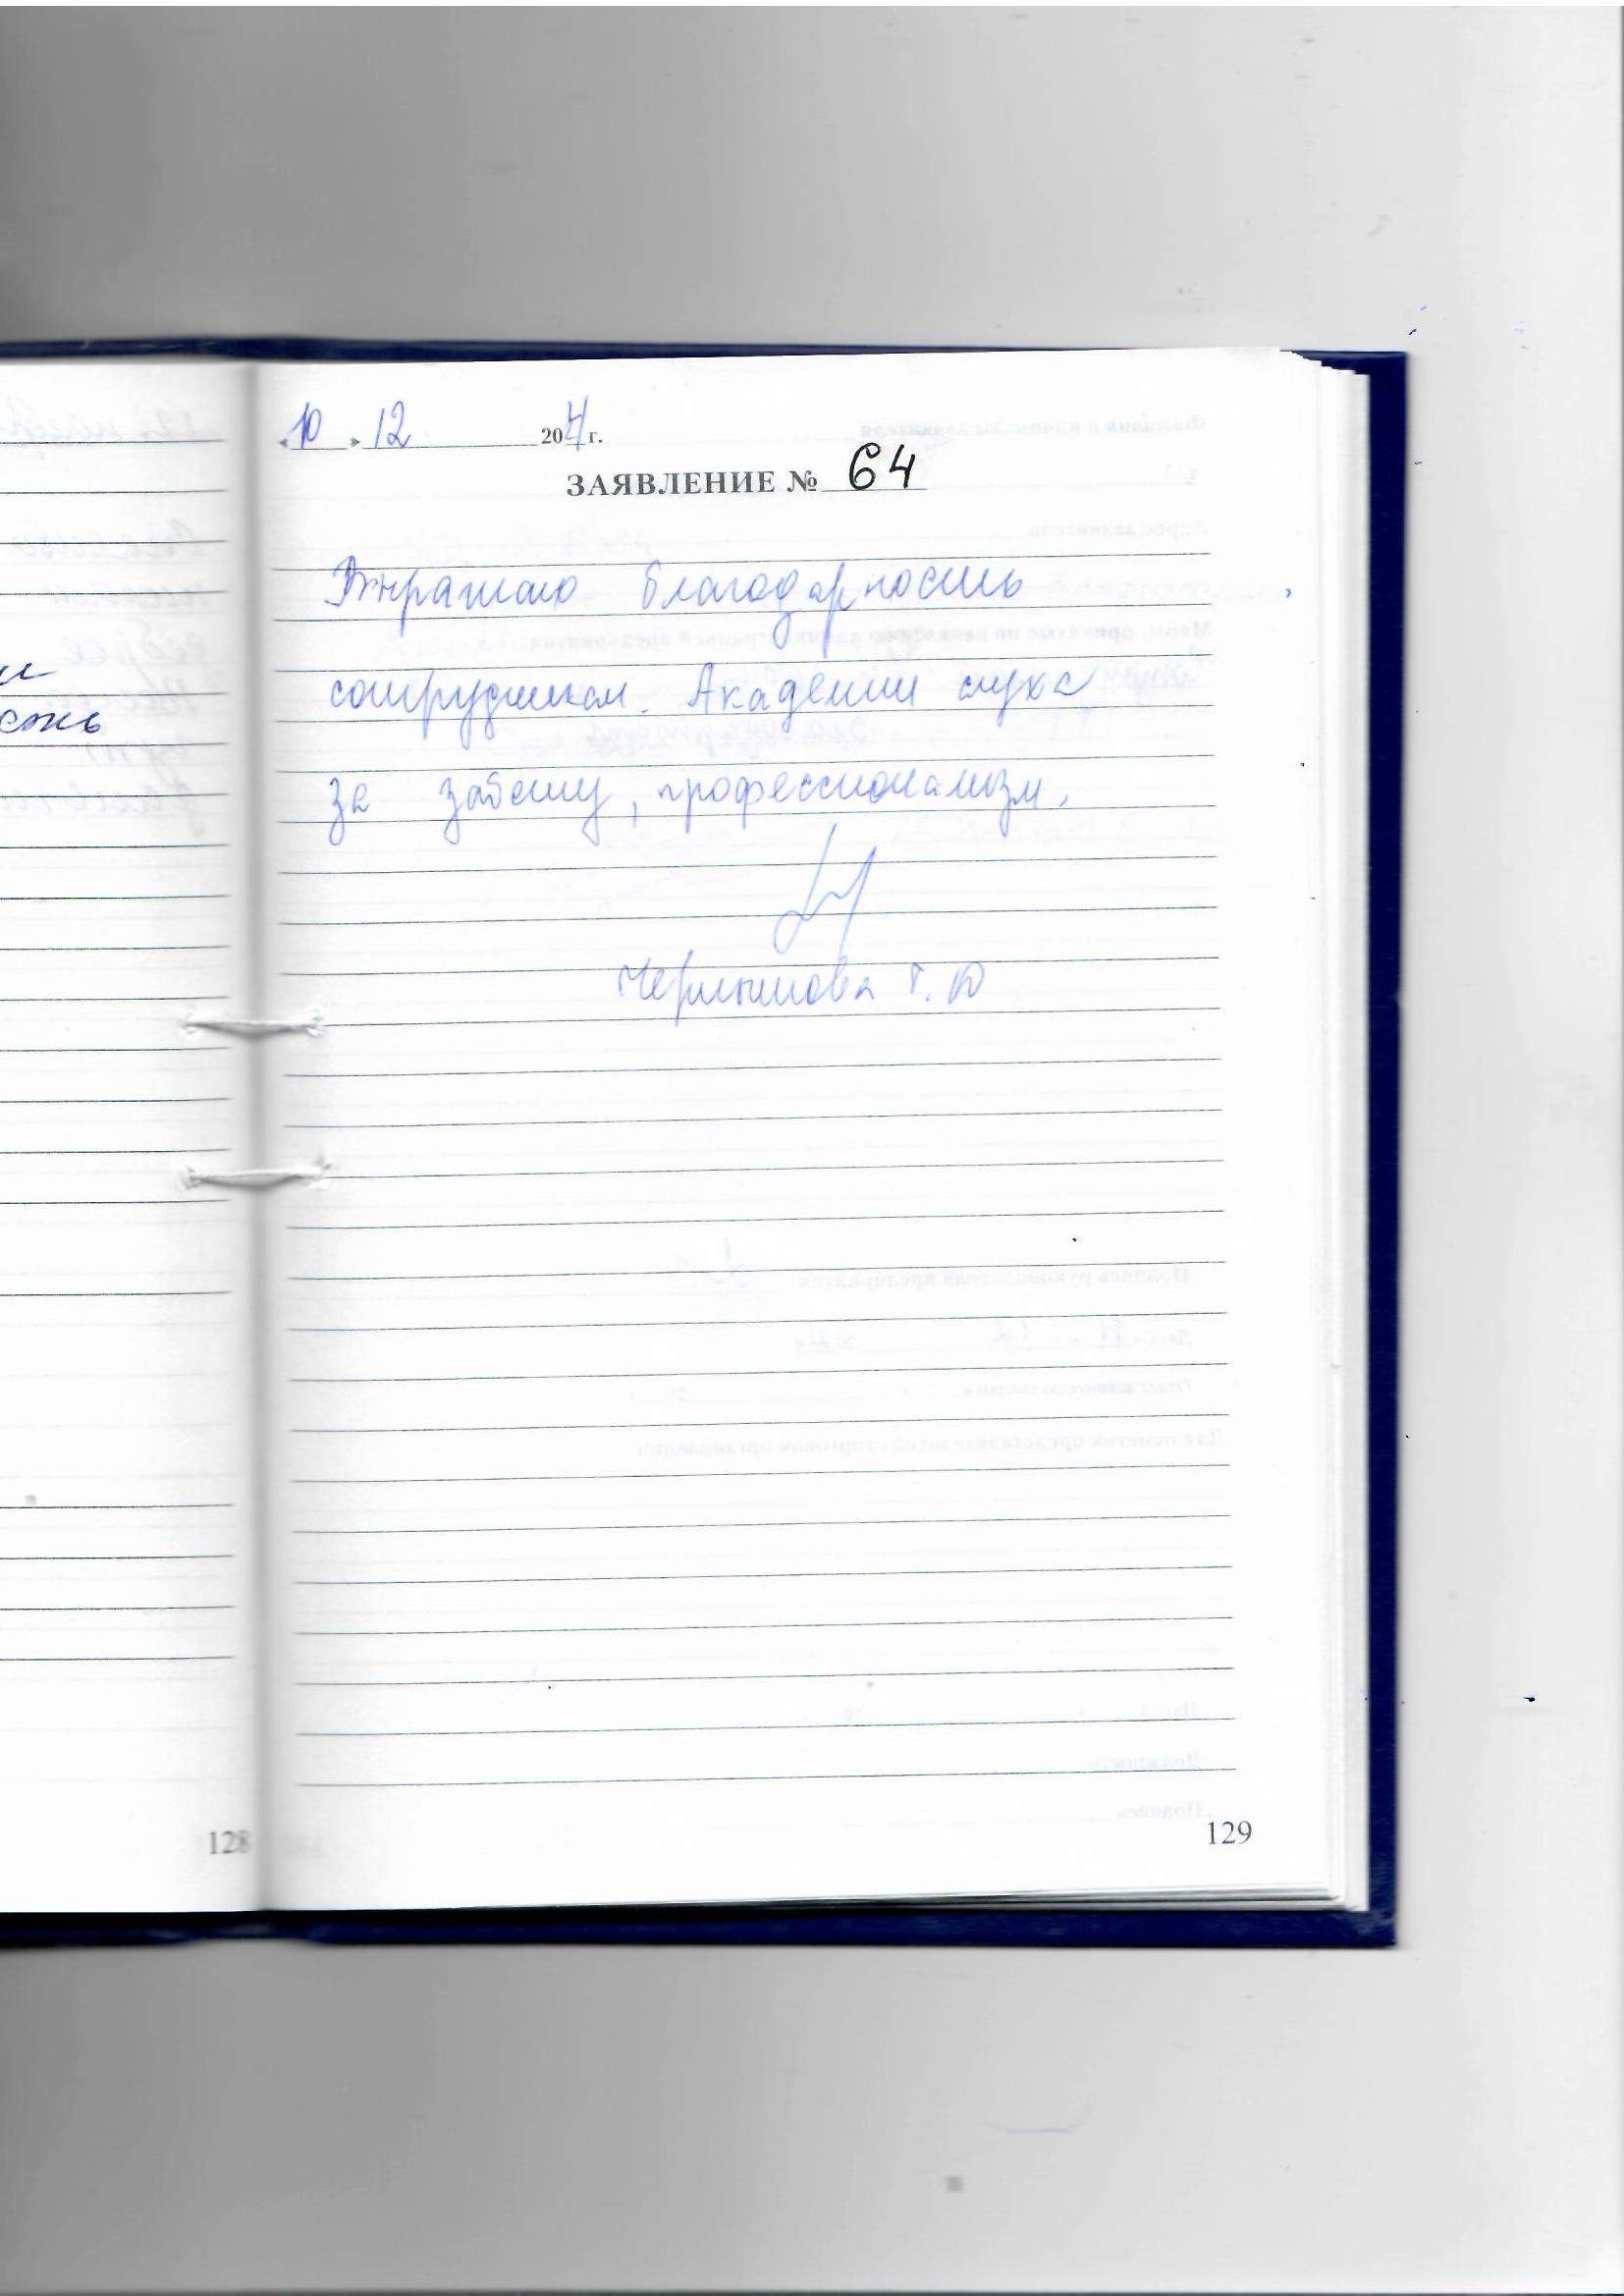 «10» 12 2024 г.
ЗАЯВЛЕНИЕ № 64
Выражаю благодарность
сотрудникам. Академии слуха
за заботу, профессионализм.
Чернышова Т. Ю
ость
128
129